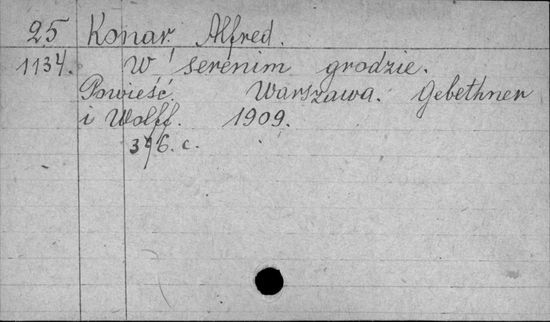 25 Konar Alfred.
1134. W serenim grodzie.
Powieść. Warszawa. Gebethner
i Wolff. 1909.
376. c.